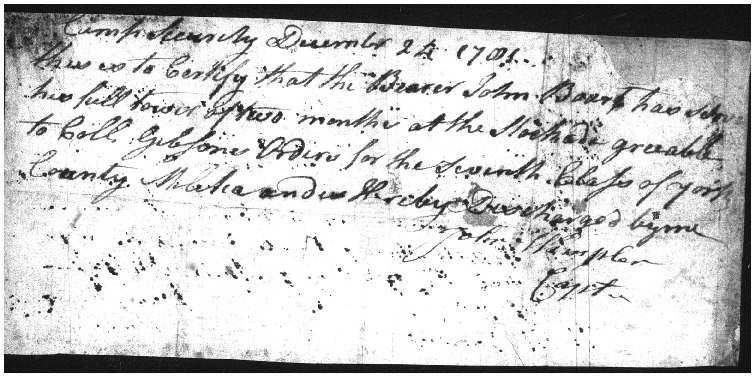 Camp Security December 24 1781
this is to Certify that the Bearer John Baart has serv
his full tower of two months at the Stockade greeable
to Coll. Gibsons Orders for the Seventh Class of York
County Miletia and is Hereby Discharged by me
John
Capt